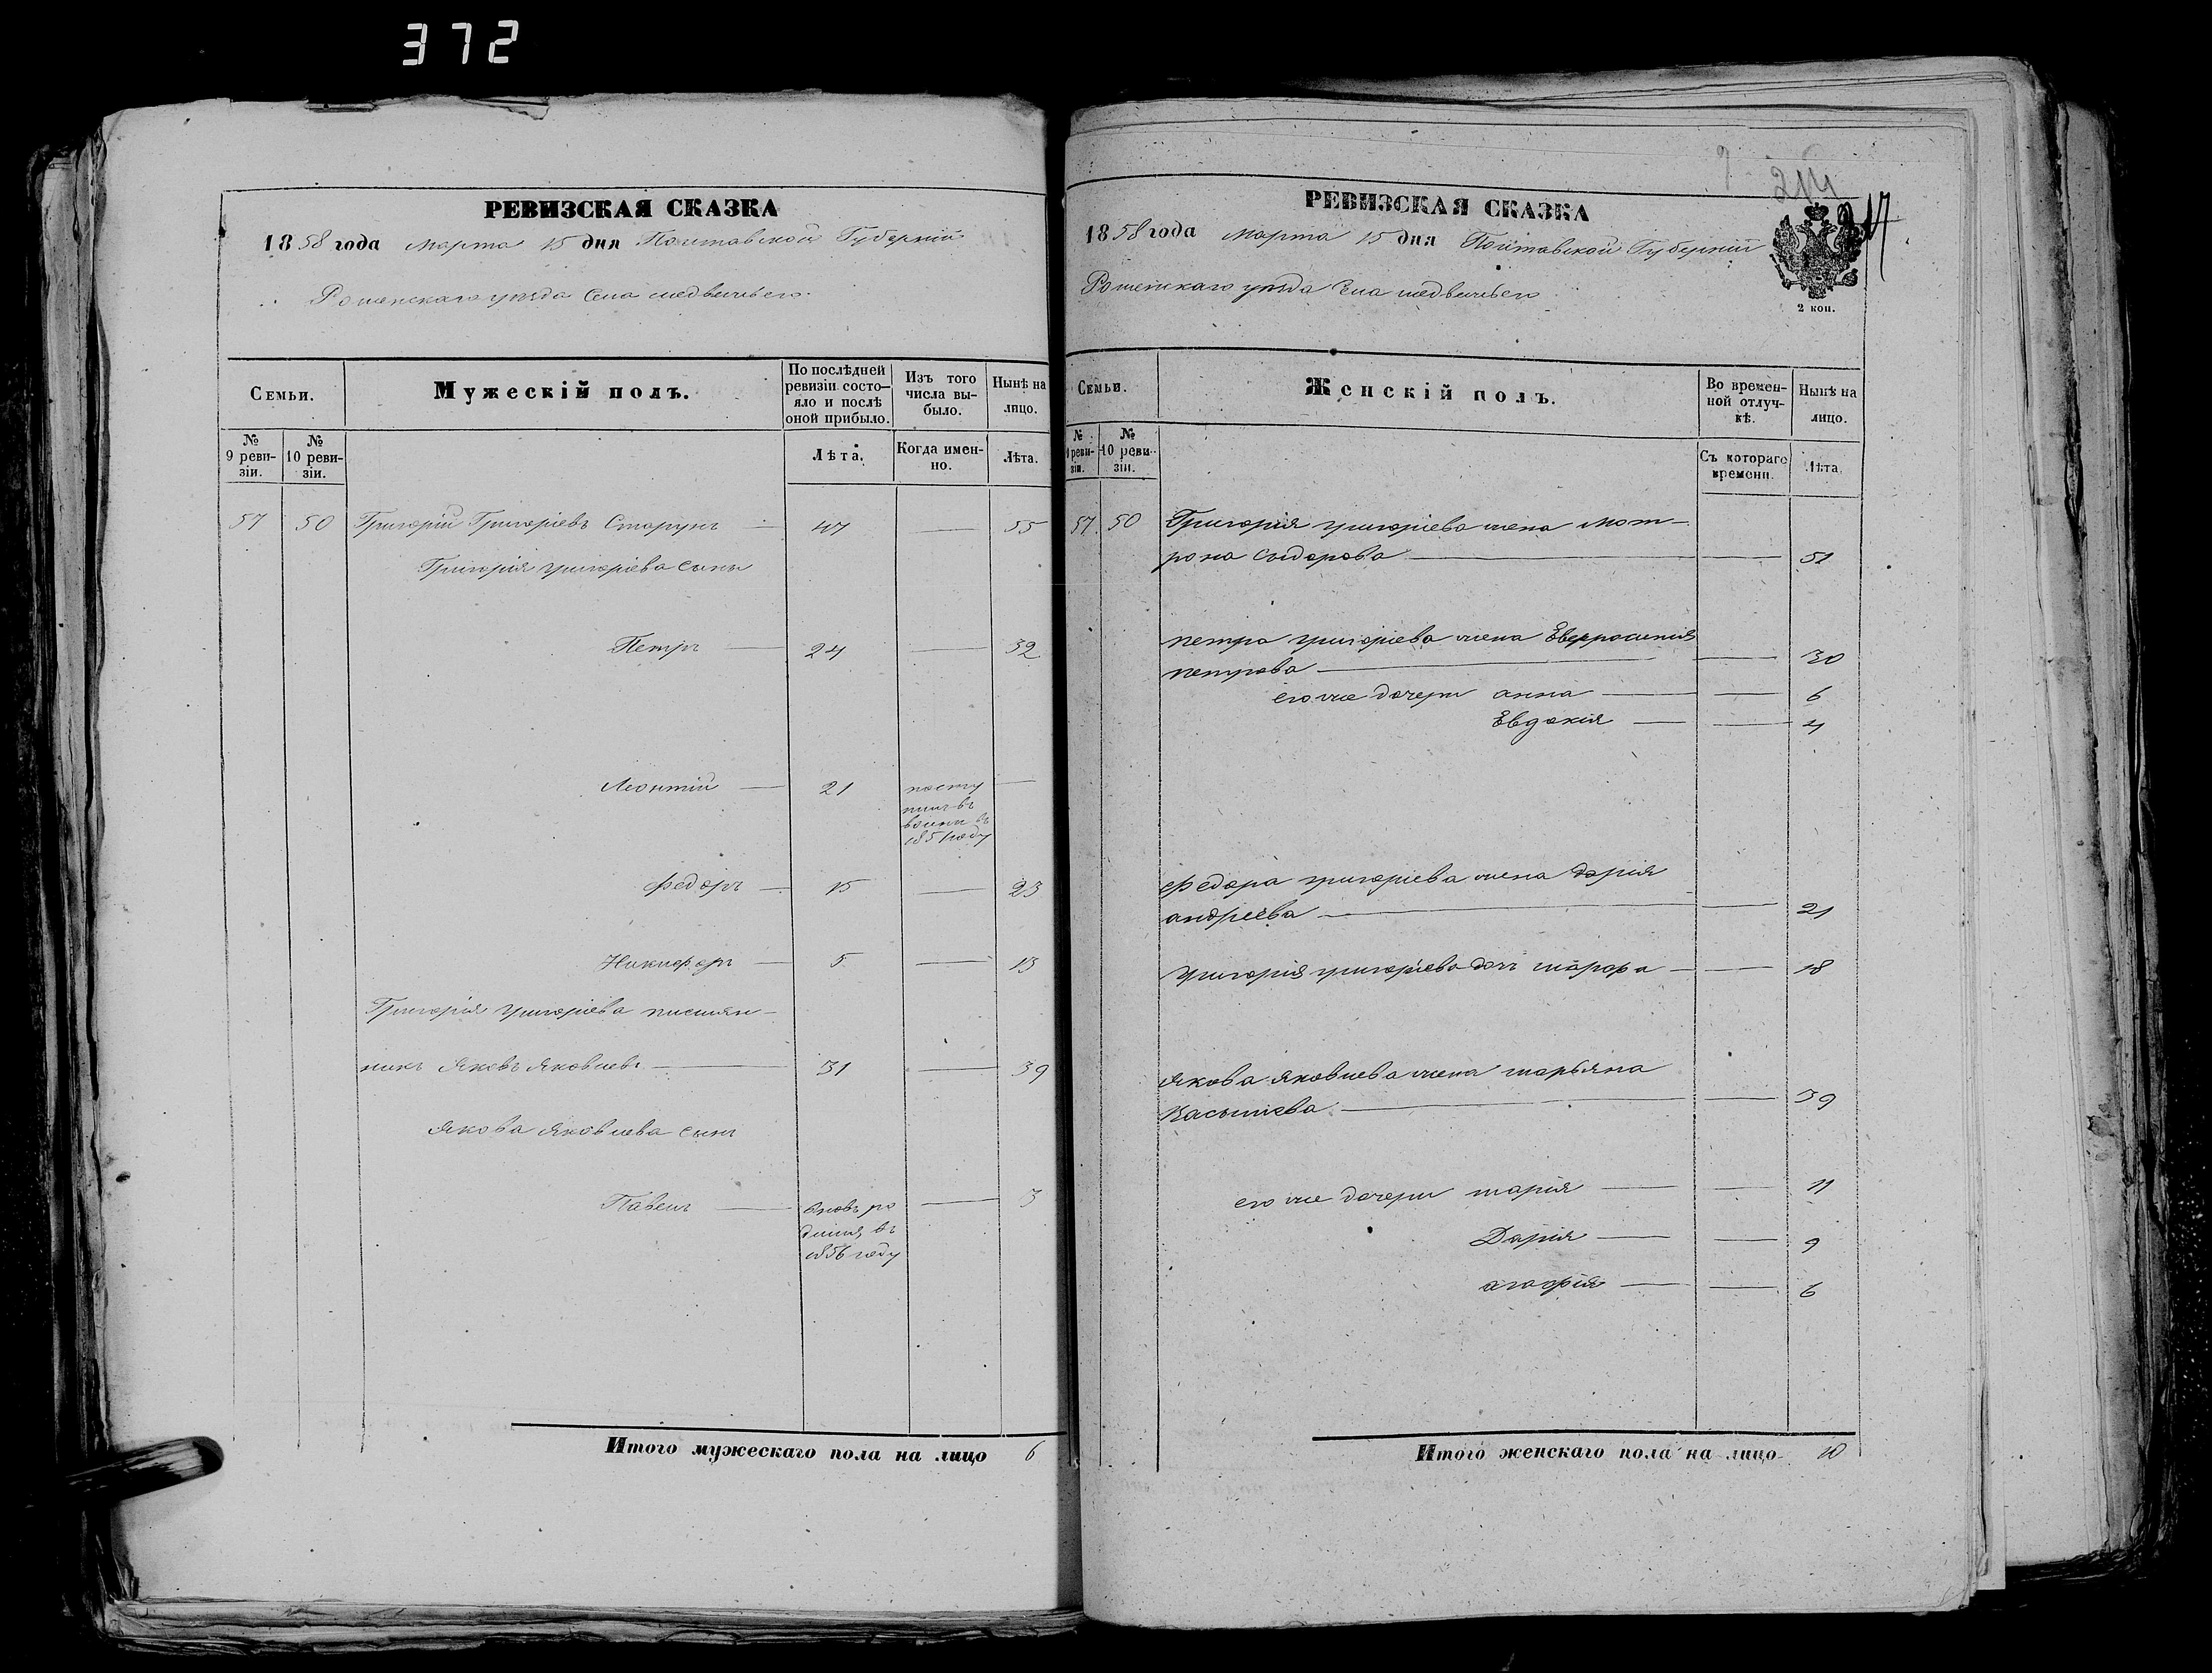 372
РЕВИЗСКАЯ СКАЗКА
1858 года Марта 15 дня Полтавской Губерніи
Роменскаго уезда Села Медвежьего
Семьи.
Мужескій полъ.
По послѣдней ревизіи состо-
яло и послѣ
оной прибыло.
Изъ того
числа вы-
было.
Нынѣ на
лицо.
№
9 реви-
зіи.
№
10 реви-
зіи.
Лѣта.
Когда имен-
но.
Лѣта.
57 50 Григорій Григоріевъ Старунъ — 47 — 55
Григорія Григоріева сины
Петръ — 24 — 32
Леонтій — 21 посту
пилъ въ
воины въ
1851 году —
Федоръ — 15 — 23
Никифоръ — 5 — 13
Григорія Григоріева письмян-
никъ Яковъ Яковлевъ — 31 — 39
Якова Яковлева сынъ
Павелъ — вновь ро
дился въ
1856 году — 3
Итого мужескаго пола на лицо 6
217
РЕВИЗСКАЯ СКАЗКА
1858 года Марта 15 дня Полтавской Губерніи
Роменскаго уезда Села Медвежьего
2 коп.
Семьи.
Женскій полъ.
Во времен-
ной отлуч-
кѣ.
Нынѣ на
лицо.
№
9 реви-
зіи.
№
10 реви-
зіи.
Съ котораго
времени.
Лѣта.
57 50 Григорія григоріева жена мот-
рона Сыдорова — — 51
петра григоріева жена Евфросинія
петрова — — 30
его же дочери анна — — 6
Евдокія — — 4
Федора григоріева жена дарія
андреева — — 21
Григорія григоріева дочъ марфа — — 18
Якова Яковлева жена марьяна
Васылієва — — 39
его же дочери марія — — 11
Дарія — — 9
агафія — — 6
Итого женскаго пола на лицо 10